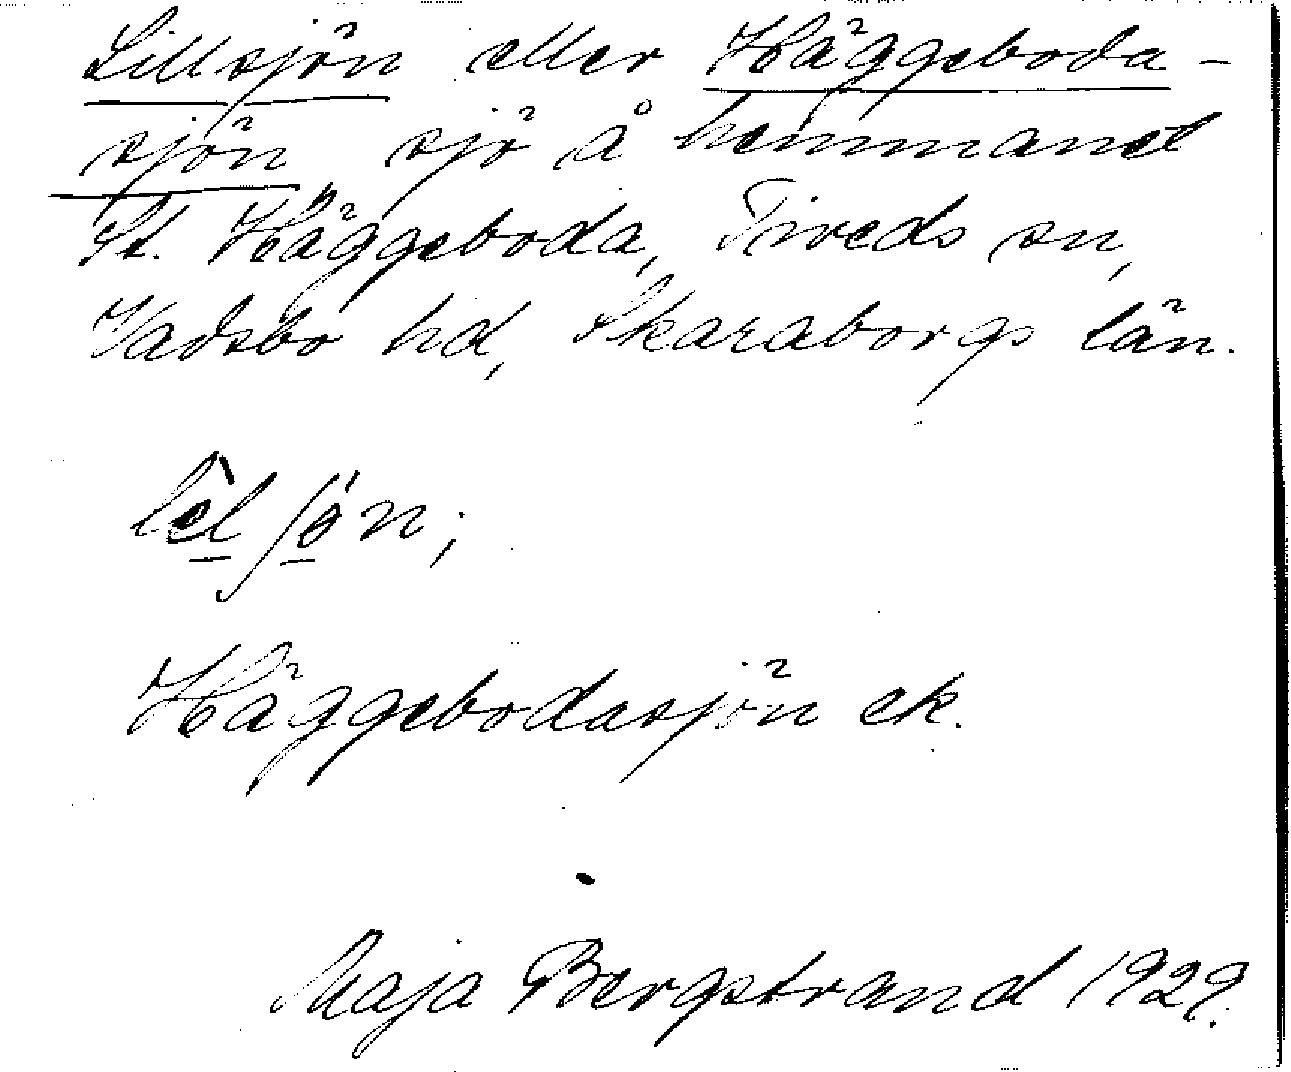 Lillsjön eller Häggeboda-
sjön sjö å hemmanet
St. Häggeboda, Tiveds sn,
Vadsbo hd, Skaraborgs län.
Häggebodasjön ek.
Maja Bergstrand 1929.